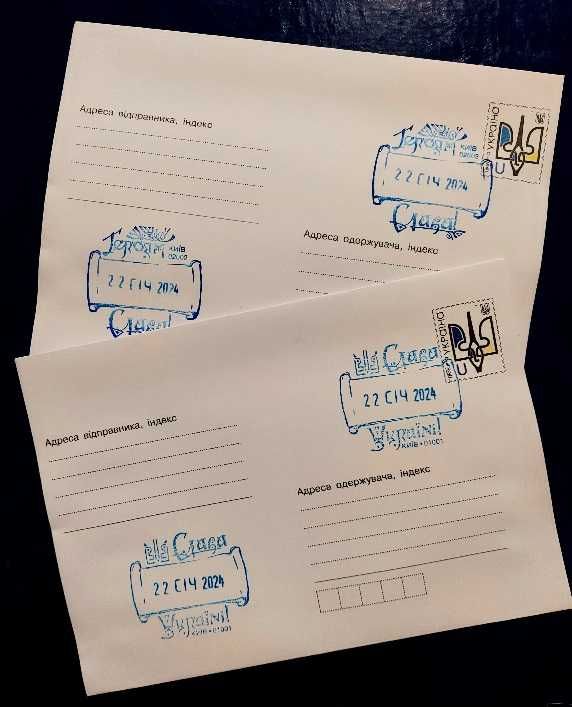 Адреса відправника, індекс
Героям
КИЇВ
02002
22 СІЧ 2024
Слава!
УКРАЇНА
U
Героям
КИЇВ
22 СІЧ 2024
Слава!
Адреса одержувача, індекс
Слава
22 СІЧ 2024
Україні!
КИЇВ • 01001
УКРАЇНА
U
Адреса відправника, індекс
Адреса одержувача, індекс
Слава
22 СІЧ 2024
Україні!
КИЇВ • 01001